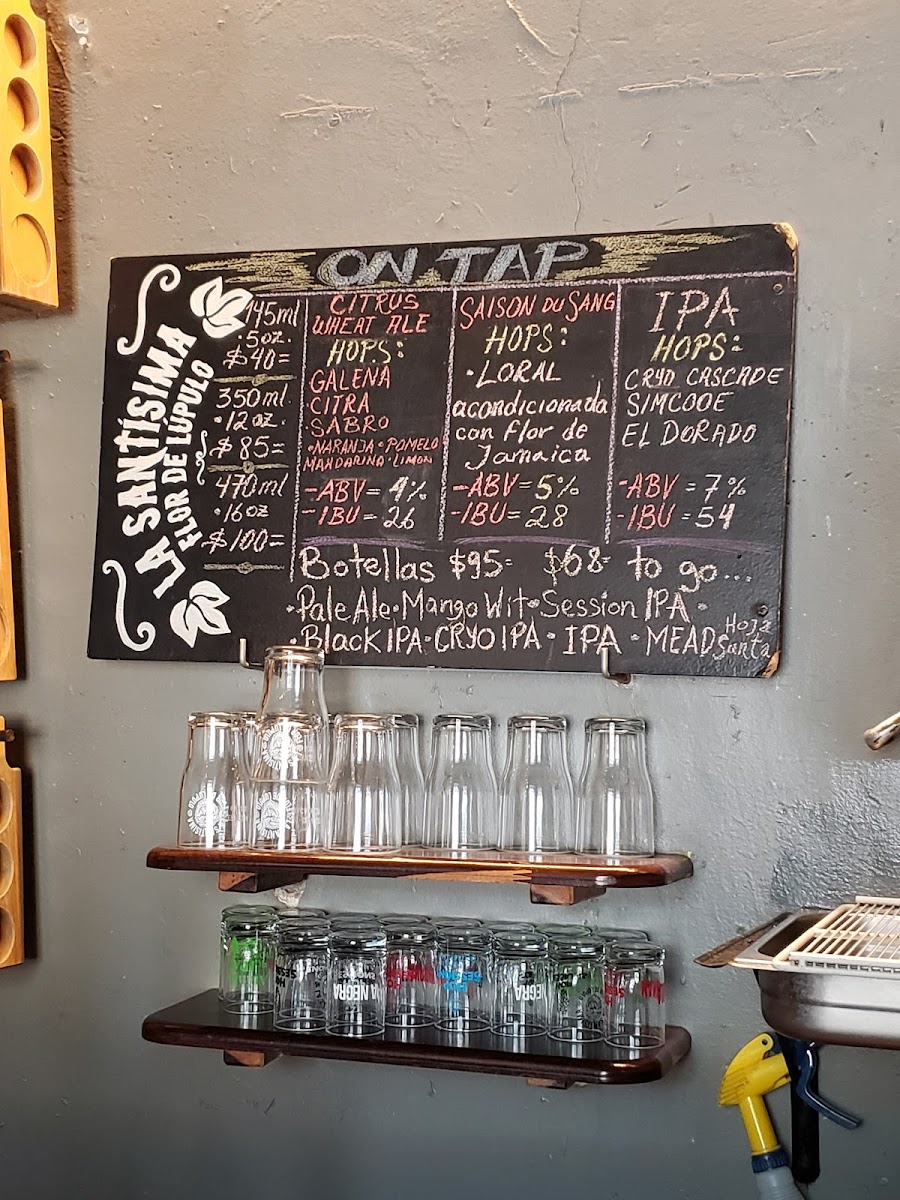 ON TAP
LA SANTÍSIMA
FLOR DE LÚPULO
145ml
.5oz.
$40=
350ml.
.12oz.
$85=
470ml
.16oz
$100=
CITRUS
WHEAT ALE
HOPS:
GALENA
CITRA
.SABRO
•NARANJA•POMELO
MANDARINA•LIMON
-ABV=4%
-IBU=26
SAISON DU SANG
HOPS:
•LORAL
acondicionada
con flor de
Jamaica
-ABV=5%
-IBU=28
IPA
HOPS:
CRYO CASCADE
SIMCOOE
EL DORADO
-ABV=7%
-IBU=54
Botellas $95= $68= to go...
•Pale Ale•Mango Wit•Session IPA•
•Black IPA•CRYO IPA•IPA•MEAD Hoja
Santa
A NEGRA